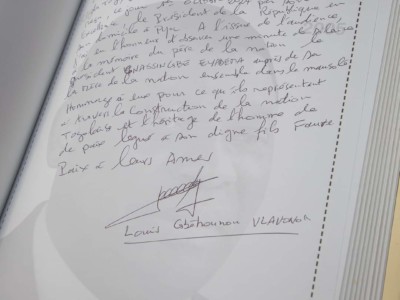 , ce jour 15 octobre par
, le Président de la République en
son domicile à . A l'issue de l'audience,
j'ai eu l'honneur d'observer une minute de silence
à la mémoire du père de la nation le
Président GNASSINGBE EYADEMA auprès de sa
la mère de la nation ensemble dans le mausolée
Hommage à eux pour ce qu'ils représentent
à travers la construction de la nation
Togolaise et l'héritage de l'homme de
de paix légué à son digne fils Faure.
Paix à leurs Ames
Louis Gbèhounou VLAVONOU